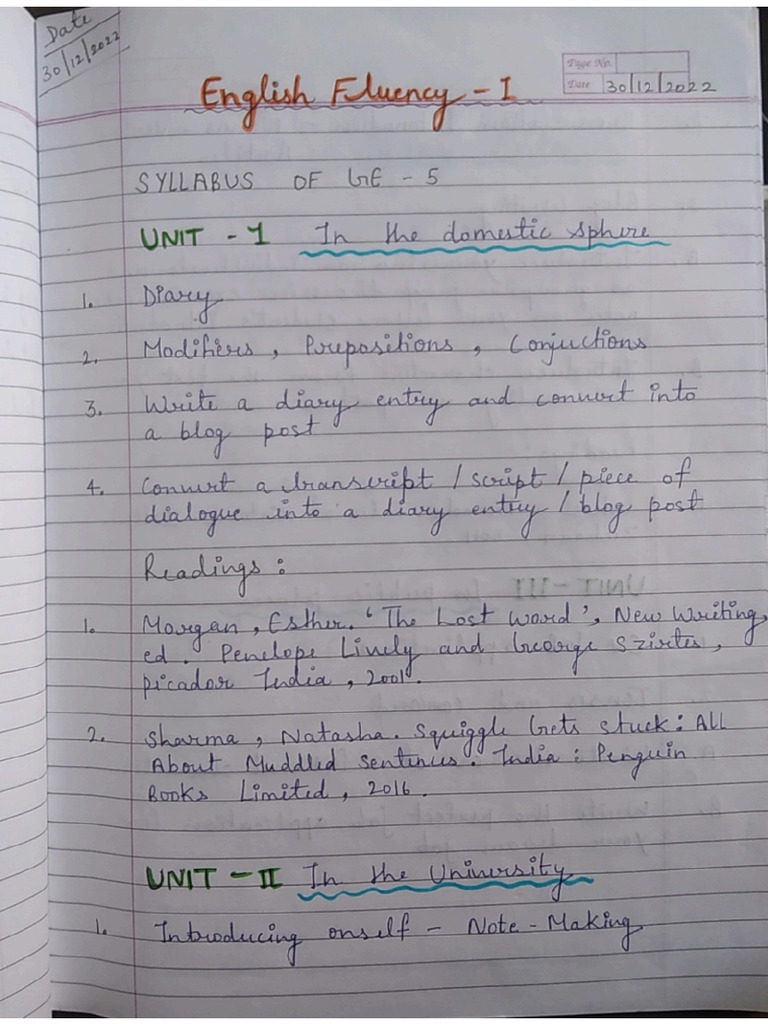 Date
30/12/2022
Page No.
Date 30/12/2022
English Fluency - I
SYLLABUS OF GE - 5
UNIT - 1 In the domestic sphere
1. Diary
2. Modifiers, Prepositions, Conjuctions
3. Write a diary entry and convert into
a blog post
4. Convert a transcript / script / piece of
dialogue into a diary entry / blog post
Readings :
1. Morgan, Esther. 'The Lost Word', New Writing,
ed. Penelope Lively and George Szirtes,
picador India, 2001.
2. Sharma, Natasha. Squiggle Gets Stuck : All
About Muddled Sentences. India : Penguin
Books Limited, 2016.
UNIT - II In the University
1. Introducing onself - Note - Making